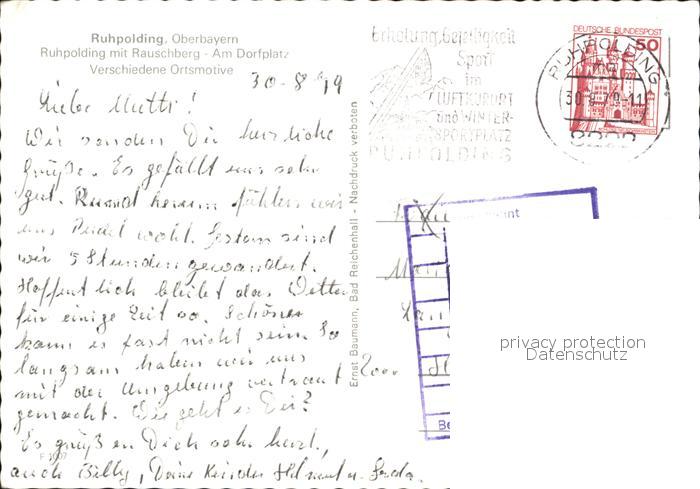 Ruhpolding, Oberbayern
Ruhpolding mit Rauschberg - Am Dorfplatz
Verschiedene Ortsmotive
30-8-79
Liebe Mutti!
Wir senden Dir herzliche
Grüße. Es gefällt uns sehr
gut. Rund herum fühlen wir
uns Pudel wohl. Gestern sind
wir 5 Stunden gewandert.
Hoffentlich bleibt das Wetter
für einige Zeit so. Schöner
kann es fast nicht sein. So
langsam haben wir uns
mit der Umgebung vertraut
gemacht. Wie geht es Dir?
Es grüßen Dich sehr herzl.,
auch Billy, Deine Kinder Helmut u.
F 1007
Ernst Baumann, Bad Reichenhall - Nachdruck verboten
Erholung, Geselligkeit
Sport
im
LUFTKURORT
und WINTER-
SPORTPLATZ
RUHPOLDING
DEUTSCHE BUNDESPOST
50
RUHPOLDING
30.8.79-11
privacy protection
Datenschutz
Be